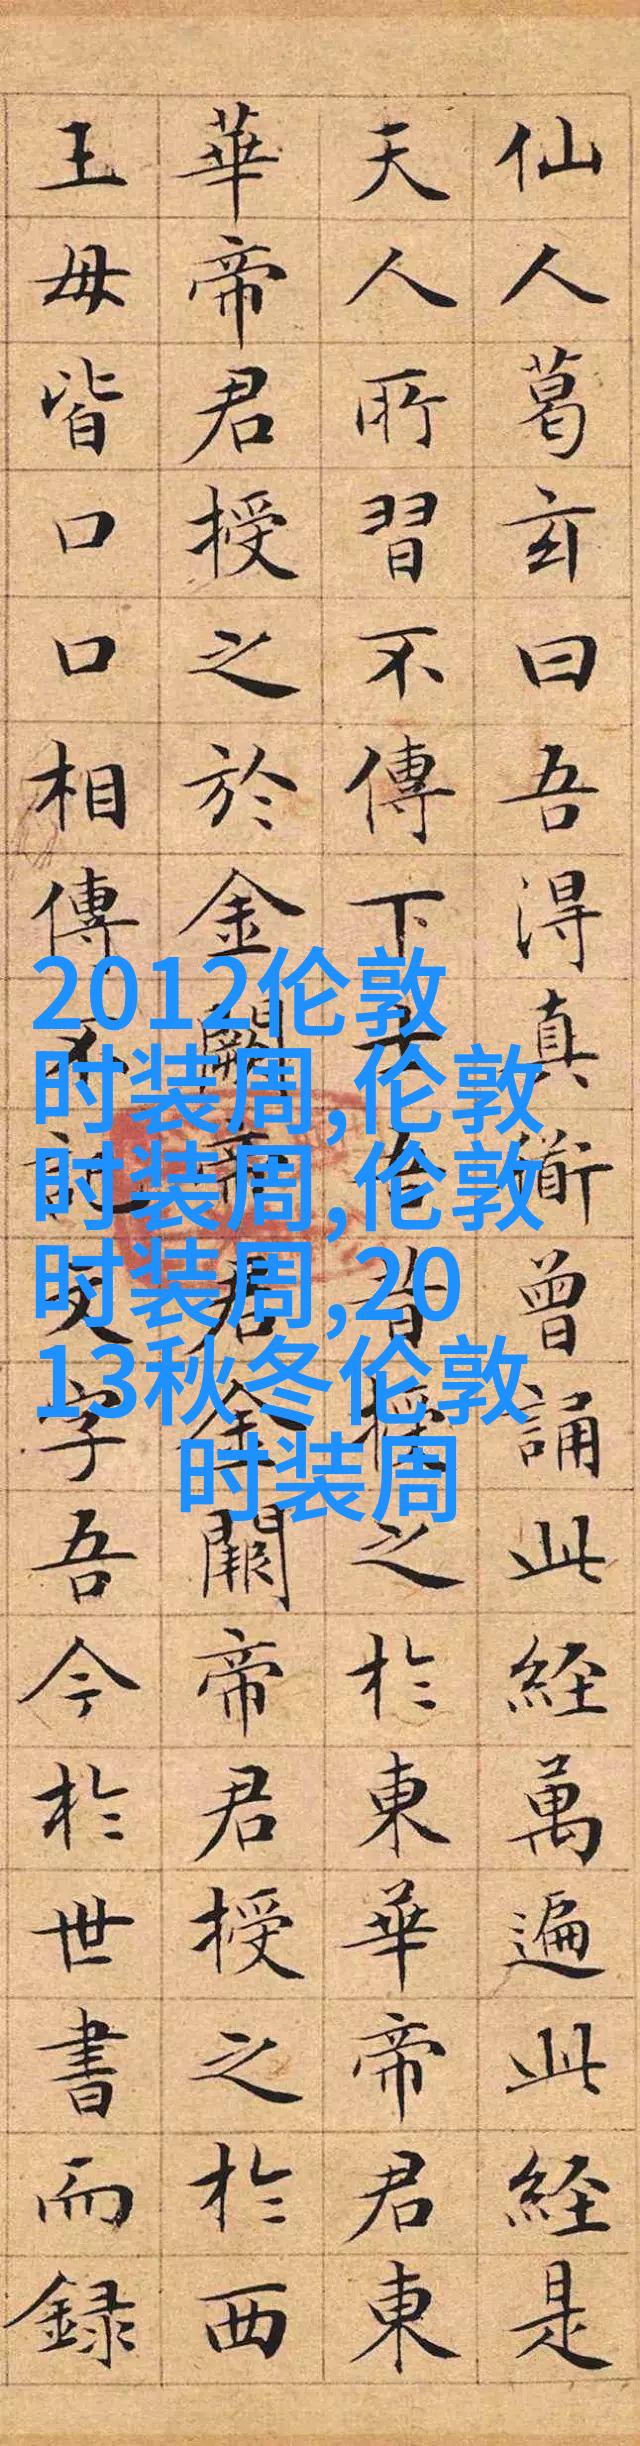 仙人葛玄曰吾淂真衜曾誦此經萬遍此經是
天人所習不傳下士吾昔授之於東華帝君東
華帝君授之於金闕帝君金闕帝君授之於西
王母皆口口相傳不記文字吾今於世書而録
2012伦敦
时装周,伦敦
时装周,伦敦
时装周,20
13秋冬伦敦
时装周